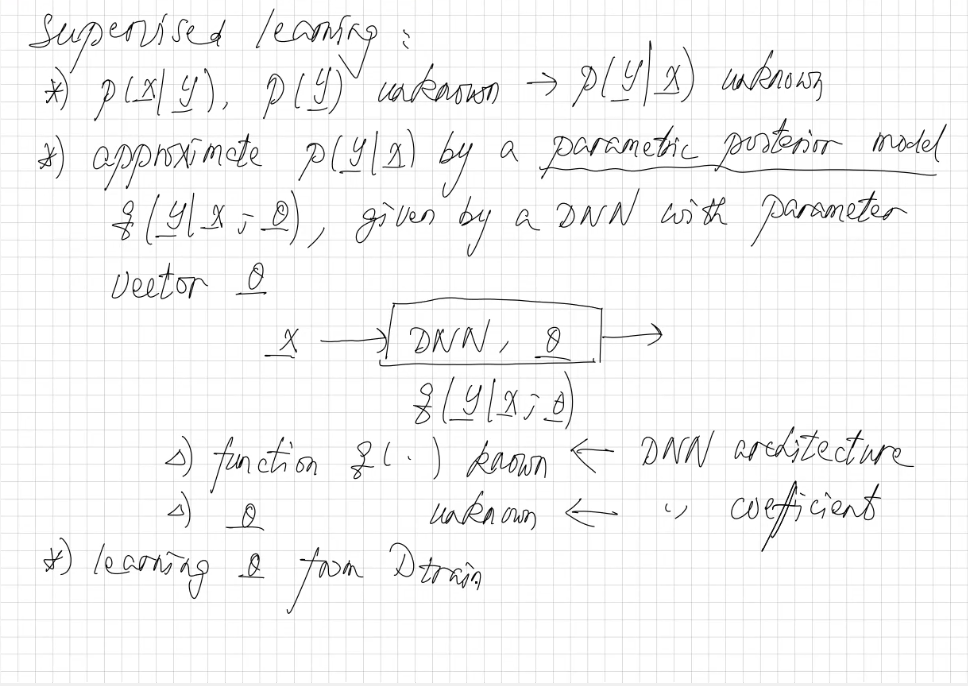 Supervised learning:
*) p(x|y), p(y) unknown → p(y|x) unknown
*) approximate p(y|x) by a parametric posterior model
q(y|x; θ), given by a DNN with parameter
vector θ
x → DNN, θ →
q(y|x; θ)
△) function q(·) known ← DNN architecture
△) θ unknown ← " coefficient
*) learning θ from Dtrain